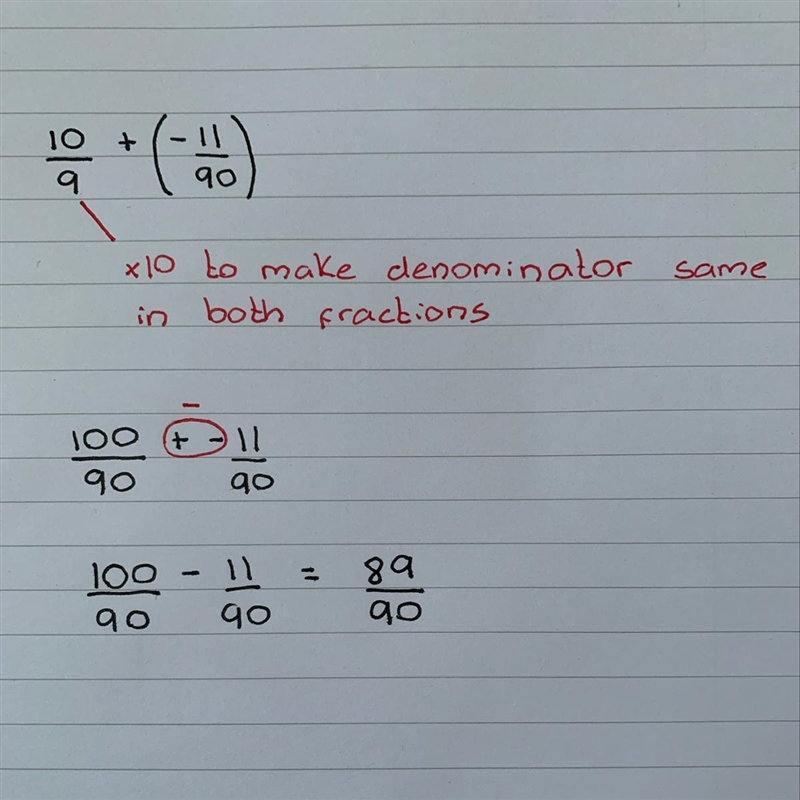 10/9 + (- 11/90)
x10 to make denominator same
in both fractions
-
100/90 + - 11/90
100/90 - 11/90 = 89/90